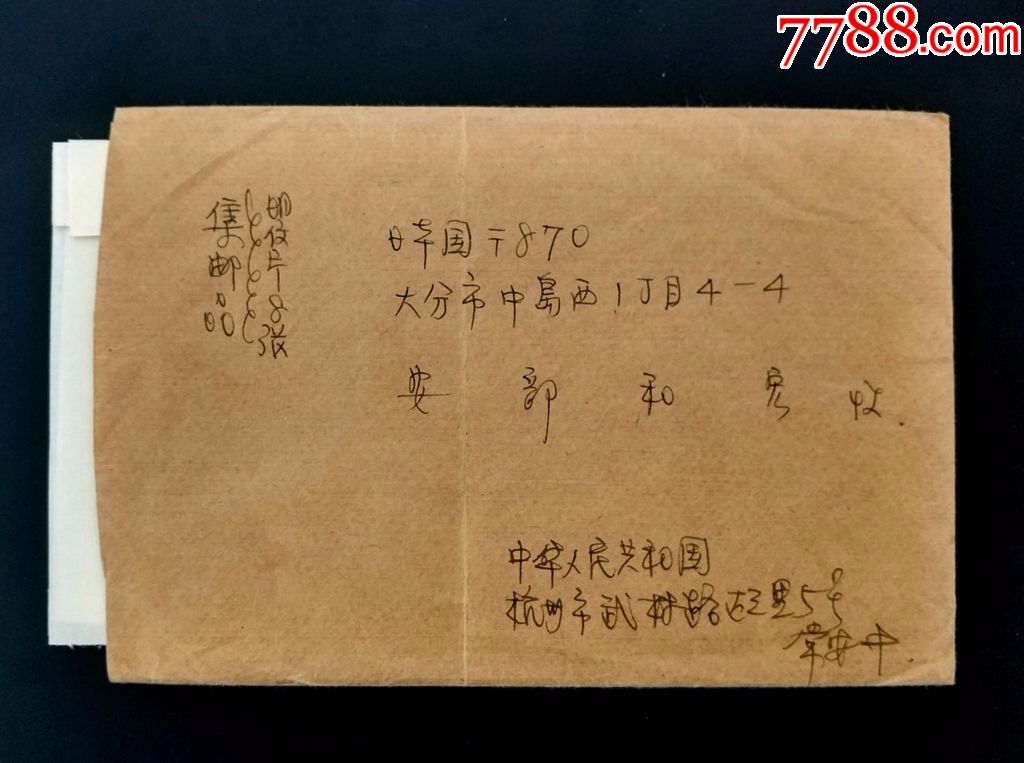 7788.com
明信片8张
集邮品
日本国〒870
大分市中島西1丁目4-4
安部和
中华人民共和国
杭州市武林路 里5号
常安中